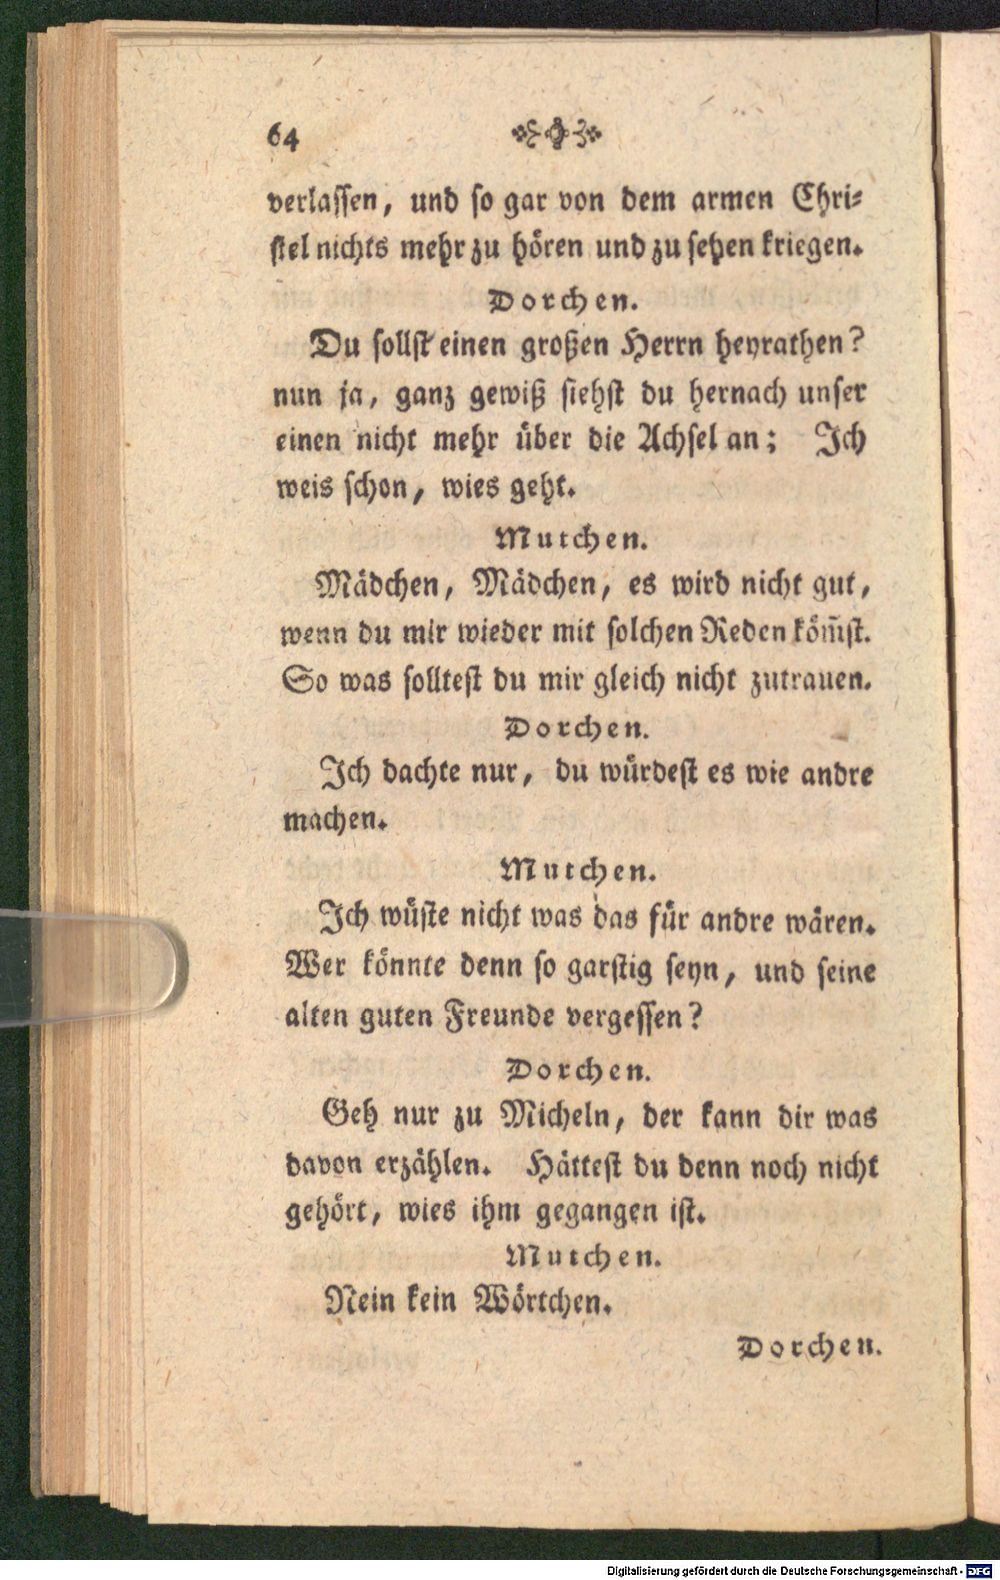 64
verlassen, und so gar von dem armen Chri-
stel nichts mehr zu hören und zu sehen kriegen.
Dorchen.
Du sollst einen großen Herrn heyrathen?
nun ja, ganz gewiß siehst du hernach unser
einen nicht mehr über die Achsel an; Ich
weis schon, wies geht.
Mutchen.
Mädchen, Mädchen, es wird nicht gut,
wenn du mir wieder mit solchen Reden köm̄st.
So was solltest du mir gleich nicht zutrauen.
Dorchen.
Ich dachte nur, du würdest es wie andre
machen.
Mutchen.
Ich wüste nicht was das für andre wären.
Wer könnte denn so garstig seyn, und seine
alten guten Freunde vergessen?
Dorchen.
Geh nur zu Micheln, der kann dir was
davon erzählen. Hättest du denn noch nicht
gehört, wies ihm gegangen ist.
Mutchen.
Nein kein Wörtchen.
Dorchen.
Digitalisierung gefördert durch die Deutsche Forschungsgemeinschaft - DFG